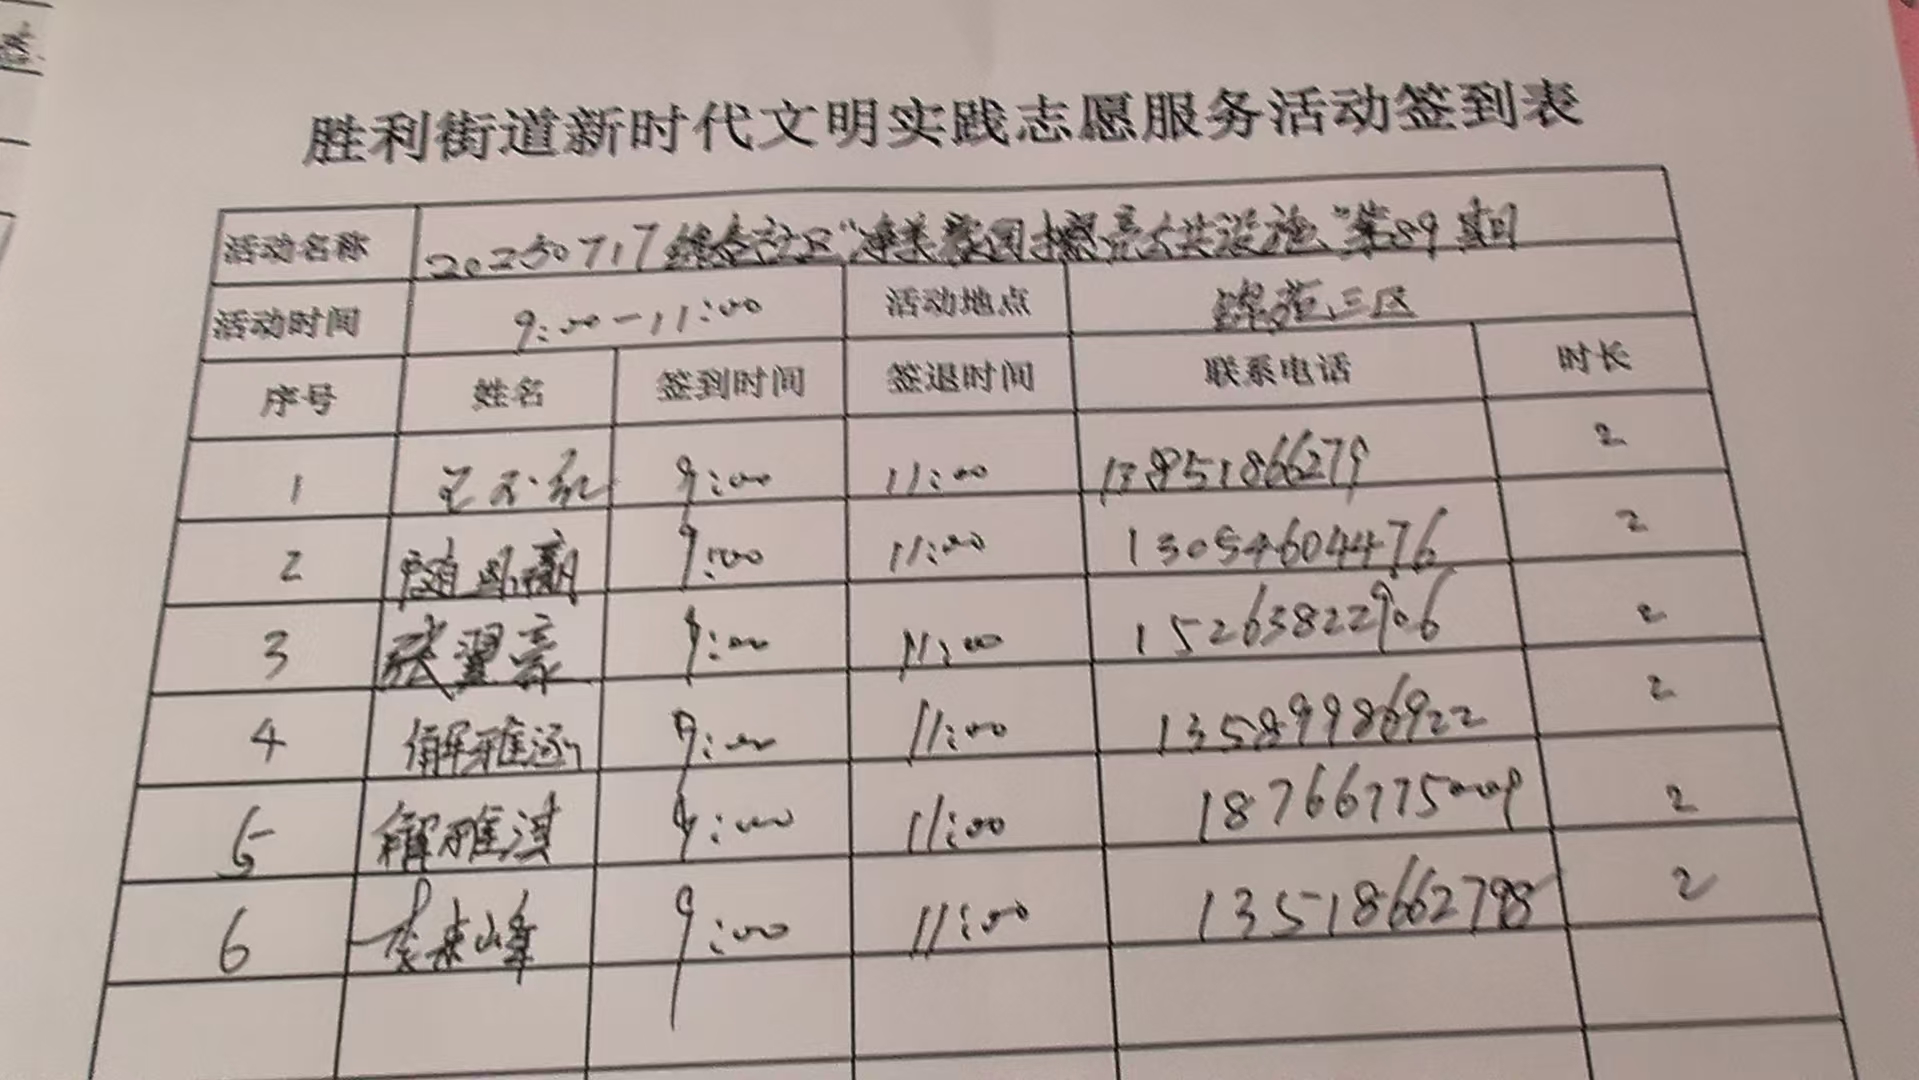 胜利街道新时代文明实践志愿服务活动签到表
活动名称 20250717锦苑社区“净美家园 擦亮公共设施”第89期
活动时间 9:00-11:00 活动地点 锦苑三区
序号 姓名 签到时间 签退时间 联系电话 时长
1 9:00 11:00 13851866279 2
2 9:00 11:00 13054604476 2
3 张翼豪 9:00 11:00 15263822906 2
4 解雅涵 9:00 11:00 13589986922 2
5 解雅淇 9:00 11:00 18766775009 2
6 9:00 11:00 13518662798 2